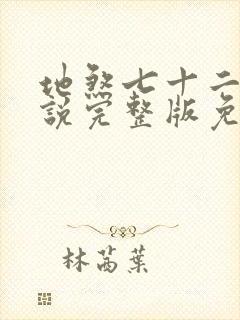 地煞七十二
說完整版免
林芮葉